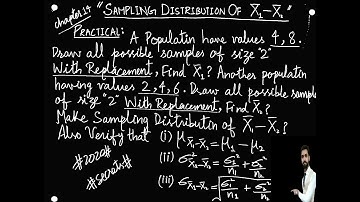 chapter 14 "SAMPLING DISTRIBUTION OF X̄₁-X̄₂"
PRACTICAL: A Populatin have values 4, 8.
Draw all possible samples of size "2"
With Replacement, Find X̄₁? Another populatin
having values 2, 4, 6. Draw all possible samples
of size "2" With Replacement, Find X̄₂?
Make Sampling Distributin of X̄₁-X̄₂?
Also Verify that (i) μX̄₁-X̄₂ = μ₁ - μ₂
(ii) σ²X̄₁-X̄₂ = σ₁²/n₁ + σ₂²/n₂
(iii) σX̄₁-X̄₂ = √(σ₁²/n₁ + σ₂²/n₂)
#2020#